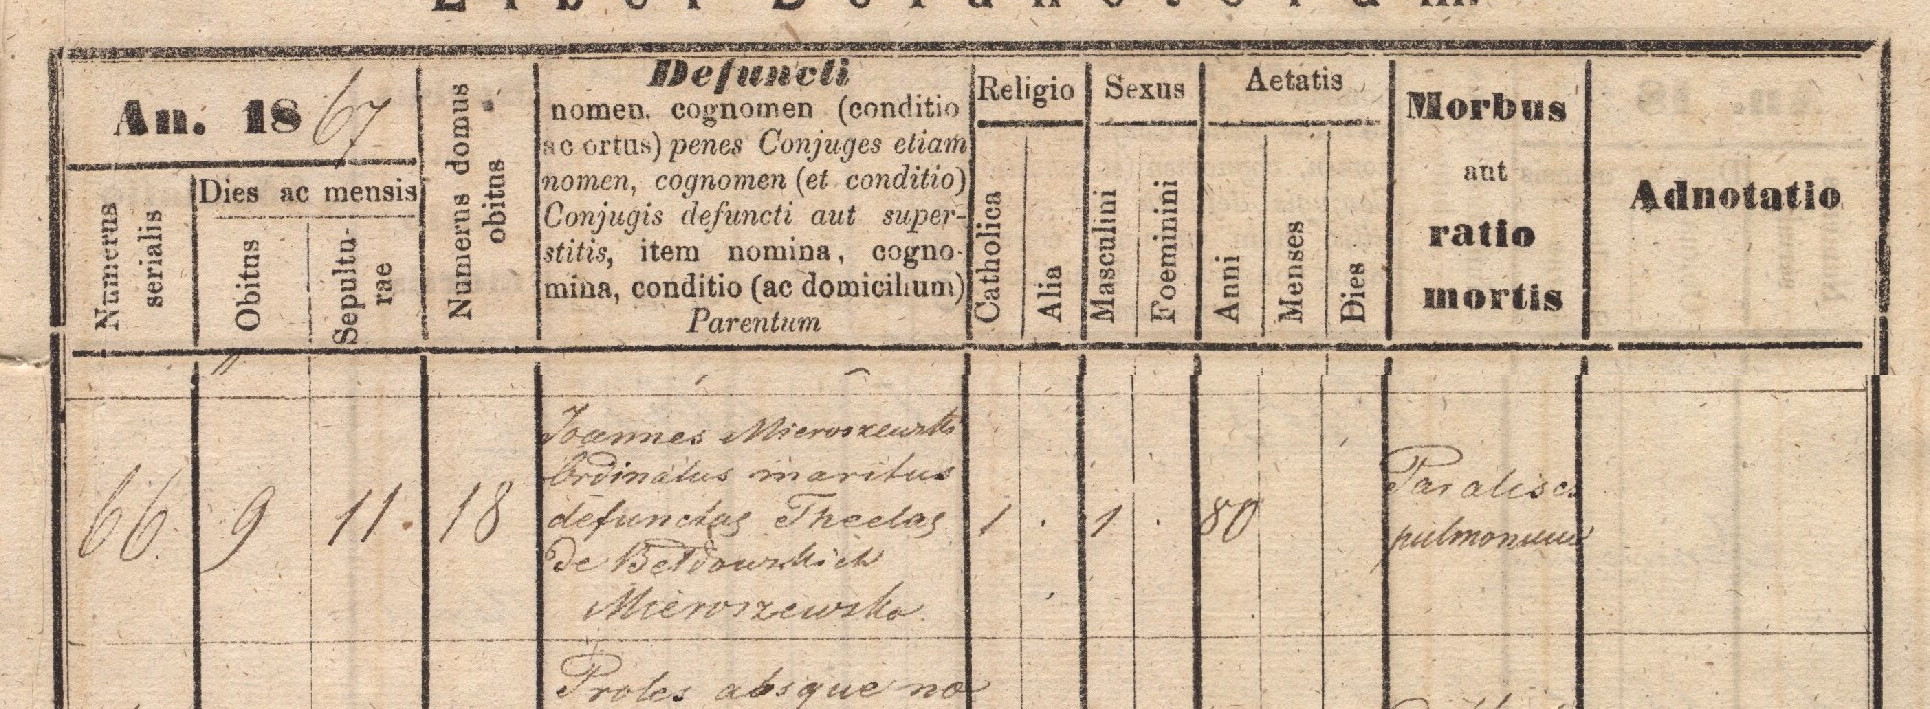 Liber Defunctorum.
An. 1867
Numerus serialis
Dies ac mensis
Obitus
Sepultu-
rae
Numerus domus
obitus
Defuncti
nomen, cognomen (conditio
ac ortus) penes Conjuges etiam
nomen, cognomen (et conditio)
Conjugis defuncti aut super-
stitis, item nomina, cogno-
mina, conditio (ac domicilium)
Parentum
Religio
Catholica
Alia
Sexus
Masculini
Foeminini
Aetatis
Anni
Menses
Dies
Morbus
aut
ratio
mortis
Adnotatio
66 9 11 18
Joannes Mieroszewski
Ordinatus maritus
defunctae Theclae
de Bełdowskich
Mieroszewska
1 . 1 . 80
Paralisis
pulmonum
Proles absque no